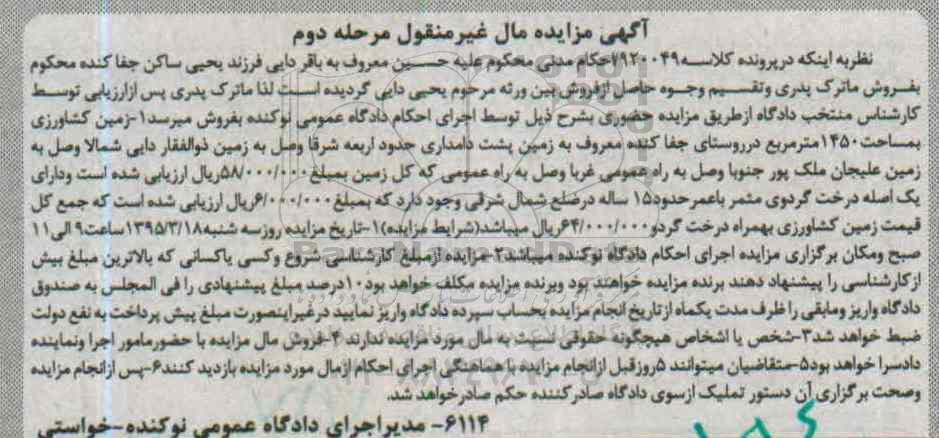 آگهی مزایده مال غیرمنقول مرحله دوم
نظربه اینکه درپرونده کلاسه ۷۹۲۰۰۴۹حکام مدنی محکوم علیه حسین معروف به باقر دایی فرزند یحیی ساکن جفا کنده محکوم
بفروش ماترک پدری وتقسیم وجوه حاصل ازفروش بین ورثه مرحوم یحیی دایی گردیده است لذا ماترک پدری پس ازارزیابی توسط
کارشناس منتخب دادگاه ازطریق مزایده حضوری بشرح ذیل توسط اجرای احکام دادگاه عمومی نوکنده بفروش میرسد۱-زمین کشاورزی
بمساحت۱۴۵۰مترمربع درروستای جفا کنده معروف به زمین پشت دامداری حدود اربعه شرقا وصل به زمین ذوالفقار دایی شمالا وصل به
زمین علیجان ملک پور جنوبا وصل به راه عمومی غربا وصل به راه عمومی که کل زمین بمبلغ۵۸/۰۰۰/۰۰۰ریال ارزیابی شده است ودارای
یک اصله درخت گردوی مثمر باعمرحدود۱۵ ساله درضلع شمال شرقی وجود دارد که بمبلغ۶/۰۰۰/۰۰۰ریال ارزیابی شده است که جمع کل
قیمت زمین کشاورزی بهمراه درخت گردو۶۴/۰۰۰/۰۰۰ریال میباشد(شرایط مزایده)۱-تاریخ مزایده روزسه شنبه۱۳۹۵/۳/۱۸ساعت۹ الی۱۱
صبح ومکان برگزاری مزایده اجرای احکام دادگاه نوکنده میباشد۲-مزایده ازمبلغ کارشناسی شروع وکسی یاکسانی که بالاترین مبلغ بیش
ازکارشناسی را پیشنهاد دهند برنده مزایده خواهند بود وبرنده مزایده مکلف خواهد بود۱۰درصد مبلغ پیشنهادی را فی المجلس به صندوق
دادگاه واریز ومابقی را ظرف مدت یکماه ازتاریخ انجام مزایده بحساب سپرده دادگاه واریز نمایید درغیراینصورت مبلغ پیش پرداخت به نفع دولت
ضبط خواهد شد۳-شخص یا اشخاص هیچگونه حقوقی نسبت به مال مورد مزایده ندارند ۴-فروش مال مزایده با حضورمامور اجرا ونماینده
دادسرا خواهد بود۵-متقاضیان میتوانند ۵روزقبل ازانجام مزایده با هماهنگی اجرای احکام ازمال مورد مزایده بازدید کنند۶-پس ازانجام مزایده
وصحت برگزاری آن دستور تملیک ازسوی دادگاه صادرکننده حکم صادرخواهد شد.
۶۱۱۴- مدیراجرای دادگاه عمومی نوکنده-خواستی